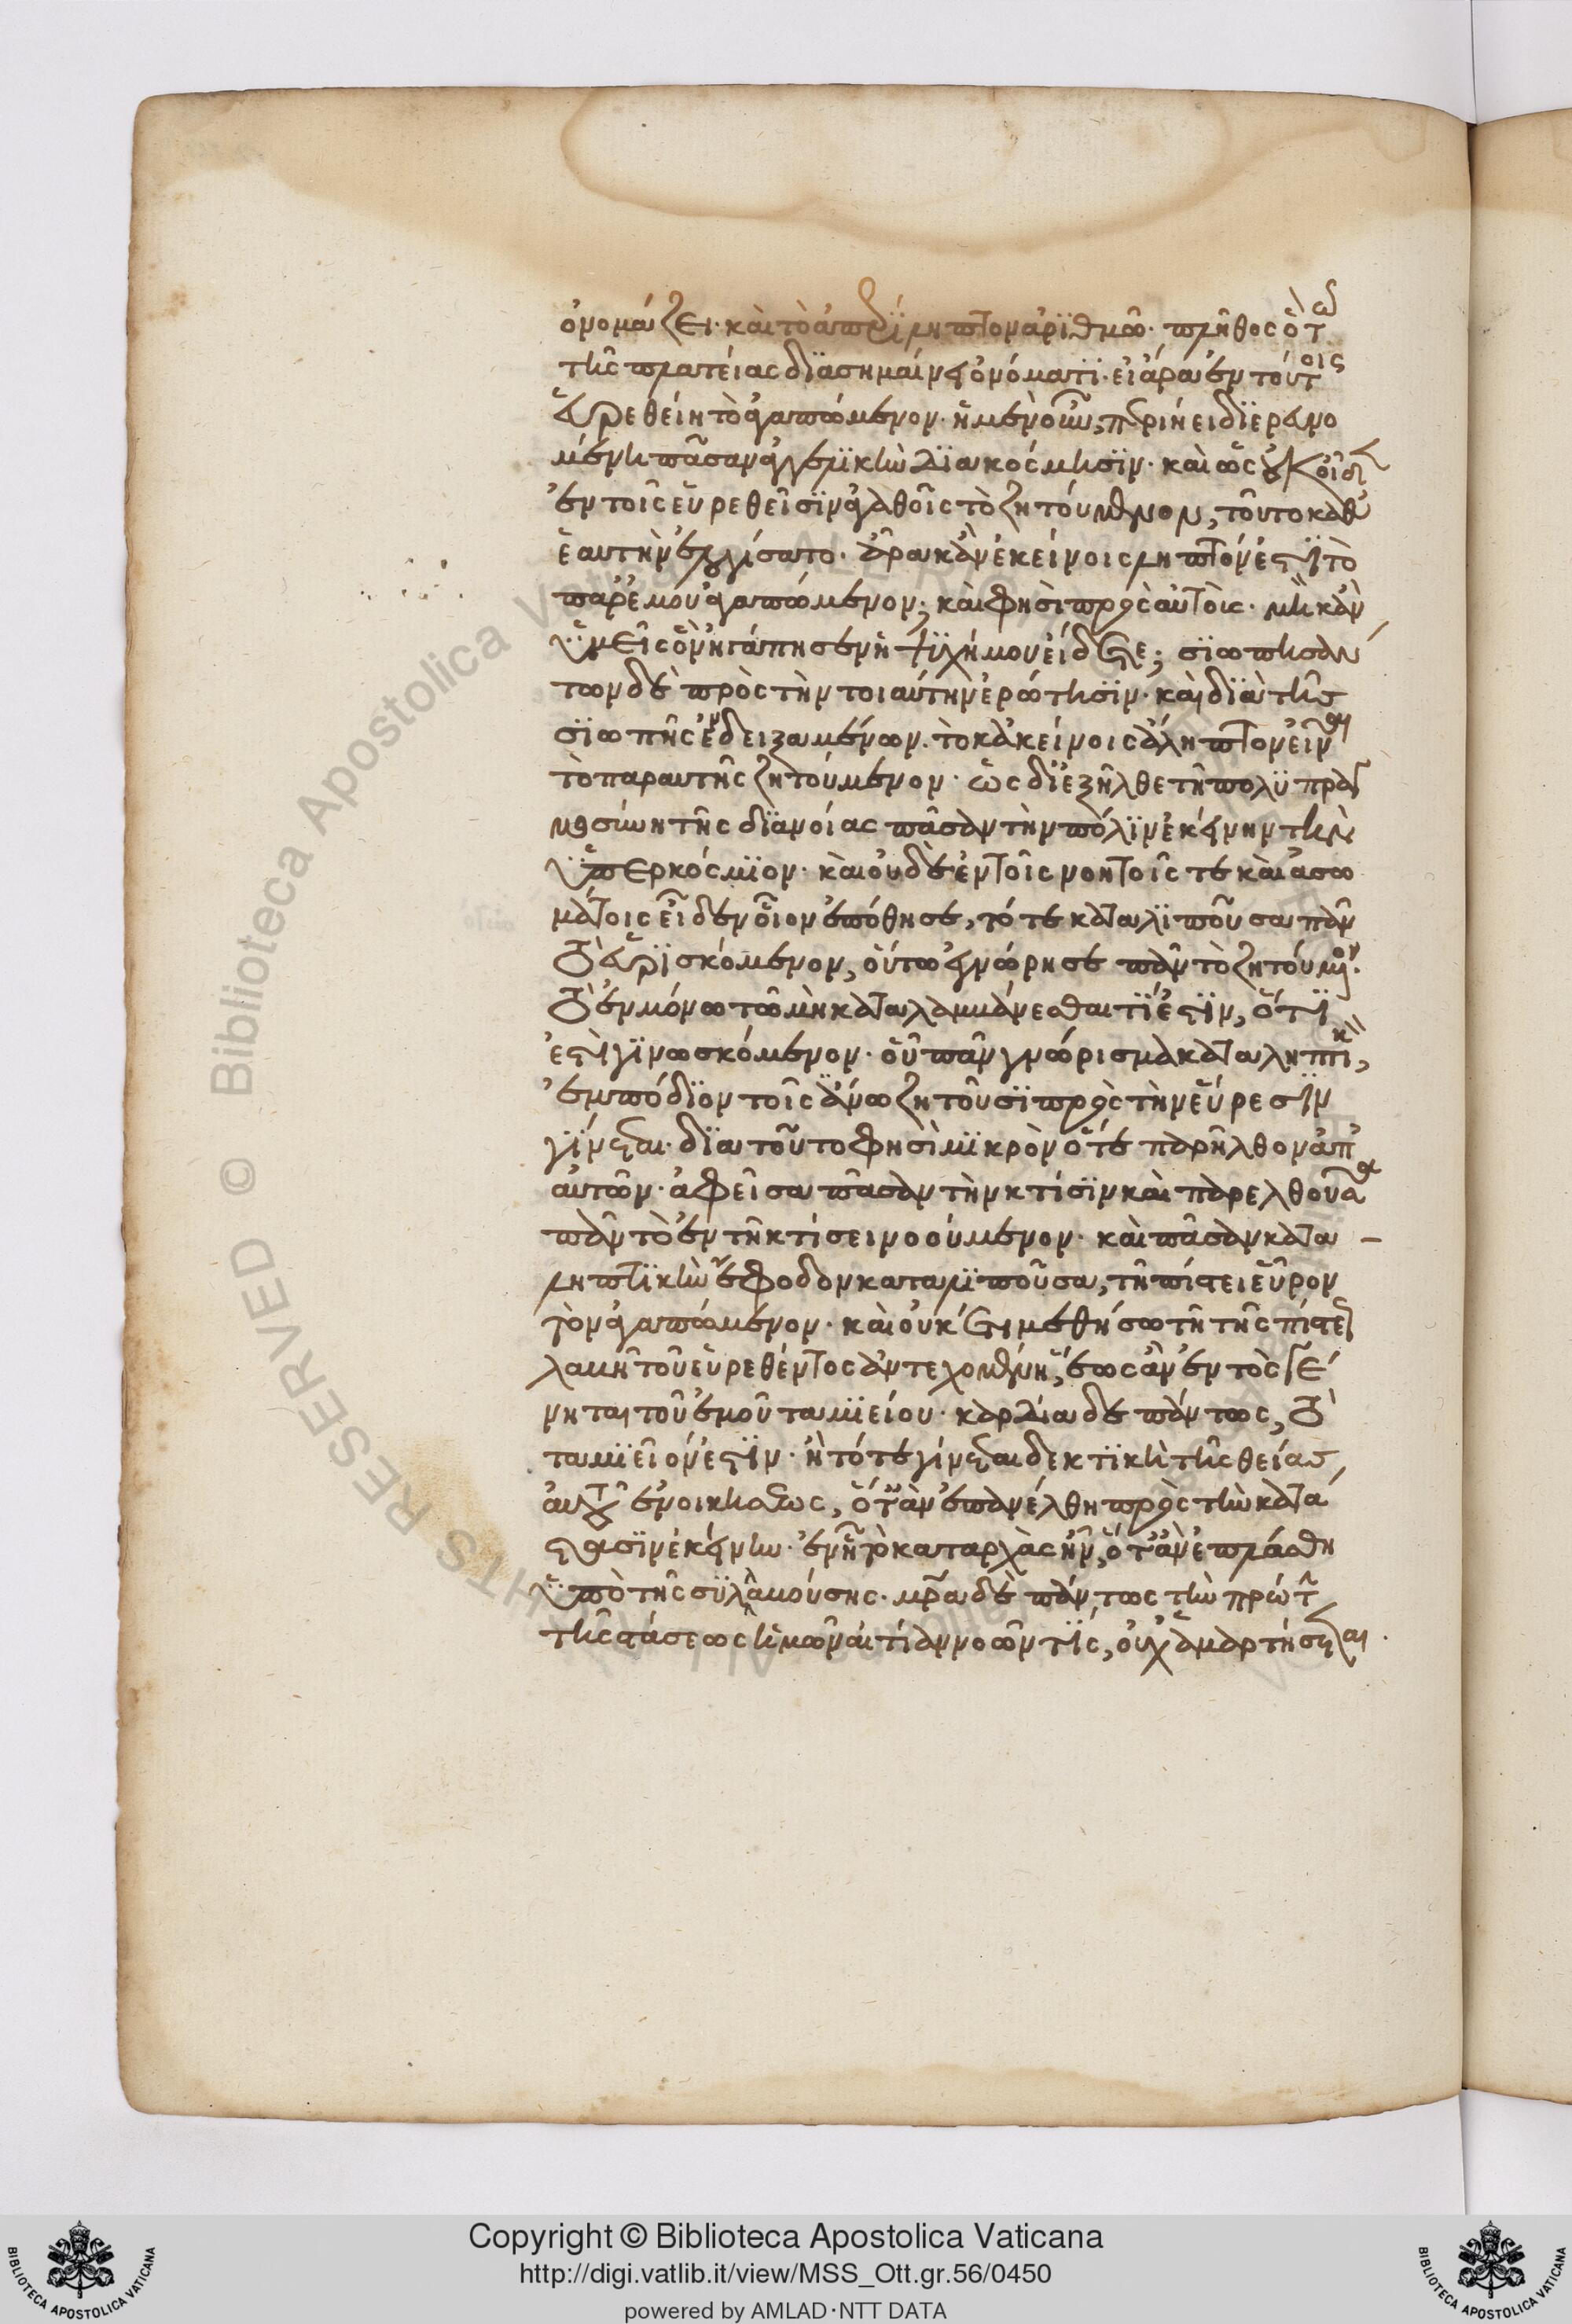 ὀνομάζει· καὶ τὸ ἀπερίληπτον ἀριθμῶ· πλῆθος οὕτω
τῆς πλατείας διασημαίνει ὀνόματι· εἰ ἄρα ἐν τούτοις
εὑρεθείη τὸ ἀγαπώμενον· ἡ μὲν οὖν, περιήει διερευνο
μένη πᾶσαν ἀγγελικὴν διακόσμησιν· καὶ ὡς οὐκ οἶδε
ἐν τοῖς εὑρεθεῖσιν ἀγαθοῖς τὸ ζητούμενον, τοῦτο καθ
ἑαυτὴν ἐλογίσατο· ἆρα κἂν ἐκείνοις ληπτόν ἐστι τὸ
παρ' ἐμοῦ ἀγαπώμενον; καί φησι πρὸς αὐτοῖς· μὴ κἂν
ὑμεῖς ὃν ἠγάπησεν ἡ ψυχή μου εἴδετε; σιωπησάν
των δὲ πρὸς τὴν τοιαύτην ἐρώτησιν· καὶ διὰ τῆς
σιωπῆς ἐνδειξαμένων. τὸ κἀκείνοις ἄληπτον εἶναι
τὸ παρ αυτῆς ζητούμενον· ὡς διεξῆλθε τῆ πολυπραγ
μοσύνη τῆς διανοίας πᾶσαν τὴν πόλιν ἐκείνην τὴν
ὑπερκόσμιον· καὶ οὐδὲ ἐν τοῖς νοητοῖς τε καὶ ἀσω
μάτοις εἶδεν οἷον ἐπόθησε, τότε καταλιποῦσα πᾶν
τὸ εὑρισκόμενον, οὕτω ἐγνώρησε πᾶν τὸ ζητούμενον·
τὸ ἐν μόνω τῶ μὴ καταλαμβάνεσθαι τί ἐστιν, ὅτι
ἐστὶ γινωσκόμενον· οὗ πᾶν γνώρισμα καταληπτικὸν,
ἐμπόδιον τοῖς ἄνω ζητοῦσι πρὸς τὴν εὕρεσιν
γίνεται· δια τοῦτο φησὶ μικρὸν ὅτε παρῆλθον ἀπ'
αὐτῶν· ἀφεῖσα πᾶσαν τὴν κτίσιν καὶ παρελθοῦσα
πᾶν τὸ ἐν τῆ κτίσει νοούμενον· καὶ πᾶσαν κατα
ληπτικὴν ἔφοδον καταλιποῦσα, τῆ πίστει εὗρον
τὸν ἀγαπώμενον· καὶ οὐκέτι μεθήσω τῆ τῆς πίστεως
λαβῆ τοῦ εὑρεθέντος ἀντεχομένη, ἕως ἂν ἐντὸς γέ
νηται τοῦ ἐμοῦ ταμιείου· καρδία δε πάντως, τὸ
ταμιεῖον ἐστιν· ἣ τότε γίνεται δεκτικὴ τῆς θείας
αὐτοῦ ἐνοικήσεως, ὅταν ἐπανέλθη πρὸς τὴν κατά
στασιν ἐκείνην· ἐν ἧ τὸ καταρχὰς ἦν, ὅταν ἐπλάσθη
ὑπὸ τῆς συλλαβούσης· μητέρα δὲ πάντως τὴν πρώτην
τῆς στάσεως ἡμῶν αἰτίαν νοῶν τίς, οὐχ ἁμαρτήσεται.